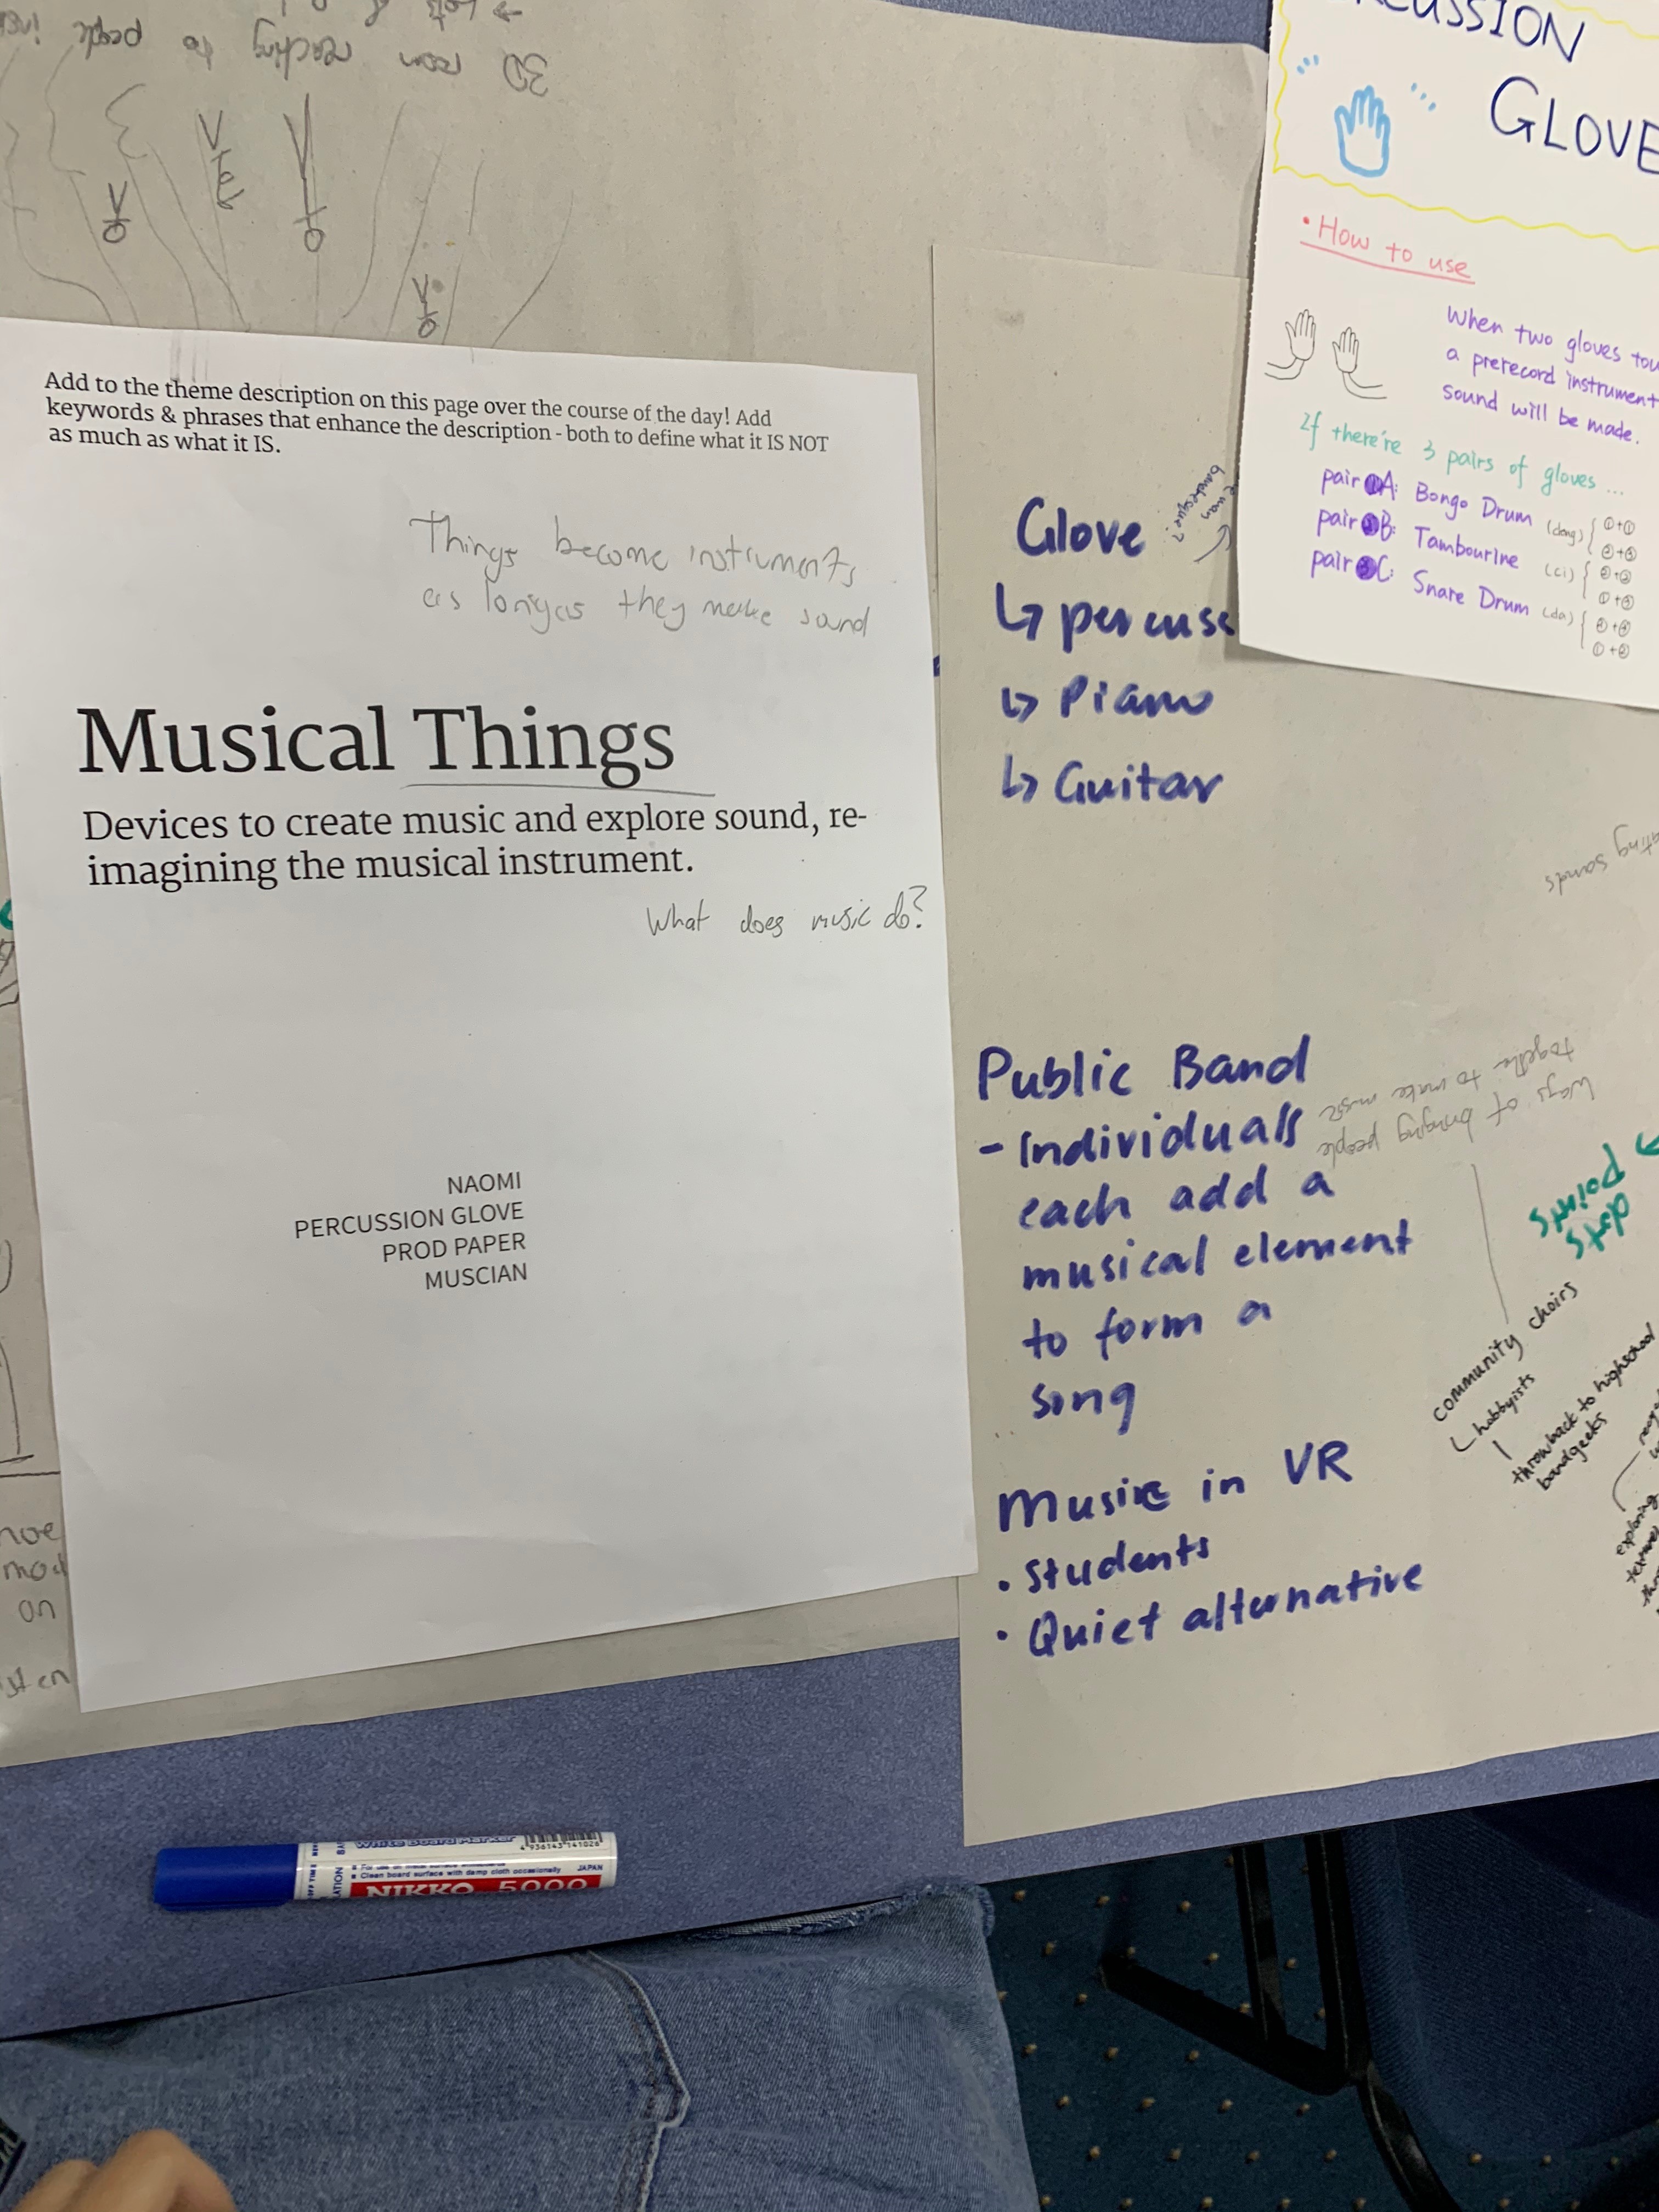 3D room reacting to people
CUSSION
GLOVE
• How to use
When two gloves tou
a prerecord instrument
sound will be made.
If there're 3 pairs of gloves ...
pair A: Bongo Drum (dong) { ①+①
pair B: Tambourine (ci) {
pair C: Snare Drum (da) {
Add to the theme description on this page over the course of the day! Add
keywords & phrases that enhance the description - both to define what it IS NOT
as much as what it IS.
Things become instruments
as long as they make sound
Musical Things
Devices to create music and explore sound, re-
imagining the musical instrument.
What does music do?
NAOMI
PERCUSSION GLOVE
PROD PAPER
MUSCIAN
Glove
↳ percuss
↳ Piano
↳ Guitar
ating sounds
Public Band
- Individuals
each add a
musical element
to form a
song
ways of bringing people
together to make music
data
points
community choirs
hobbyists
throwback to highschool
band geeks
exploring
Music in VR
• Students
• Quiet alternative
on
White Board Marker
4 936143 141026
Clean board surface with damp cloth occasionally
JAPAN
NIKKO 5000